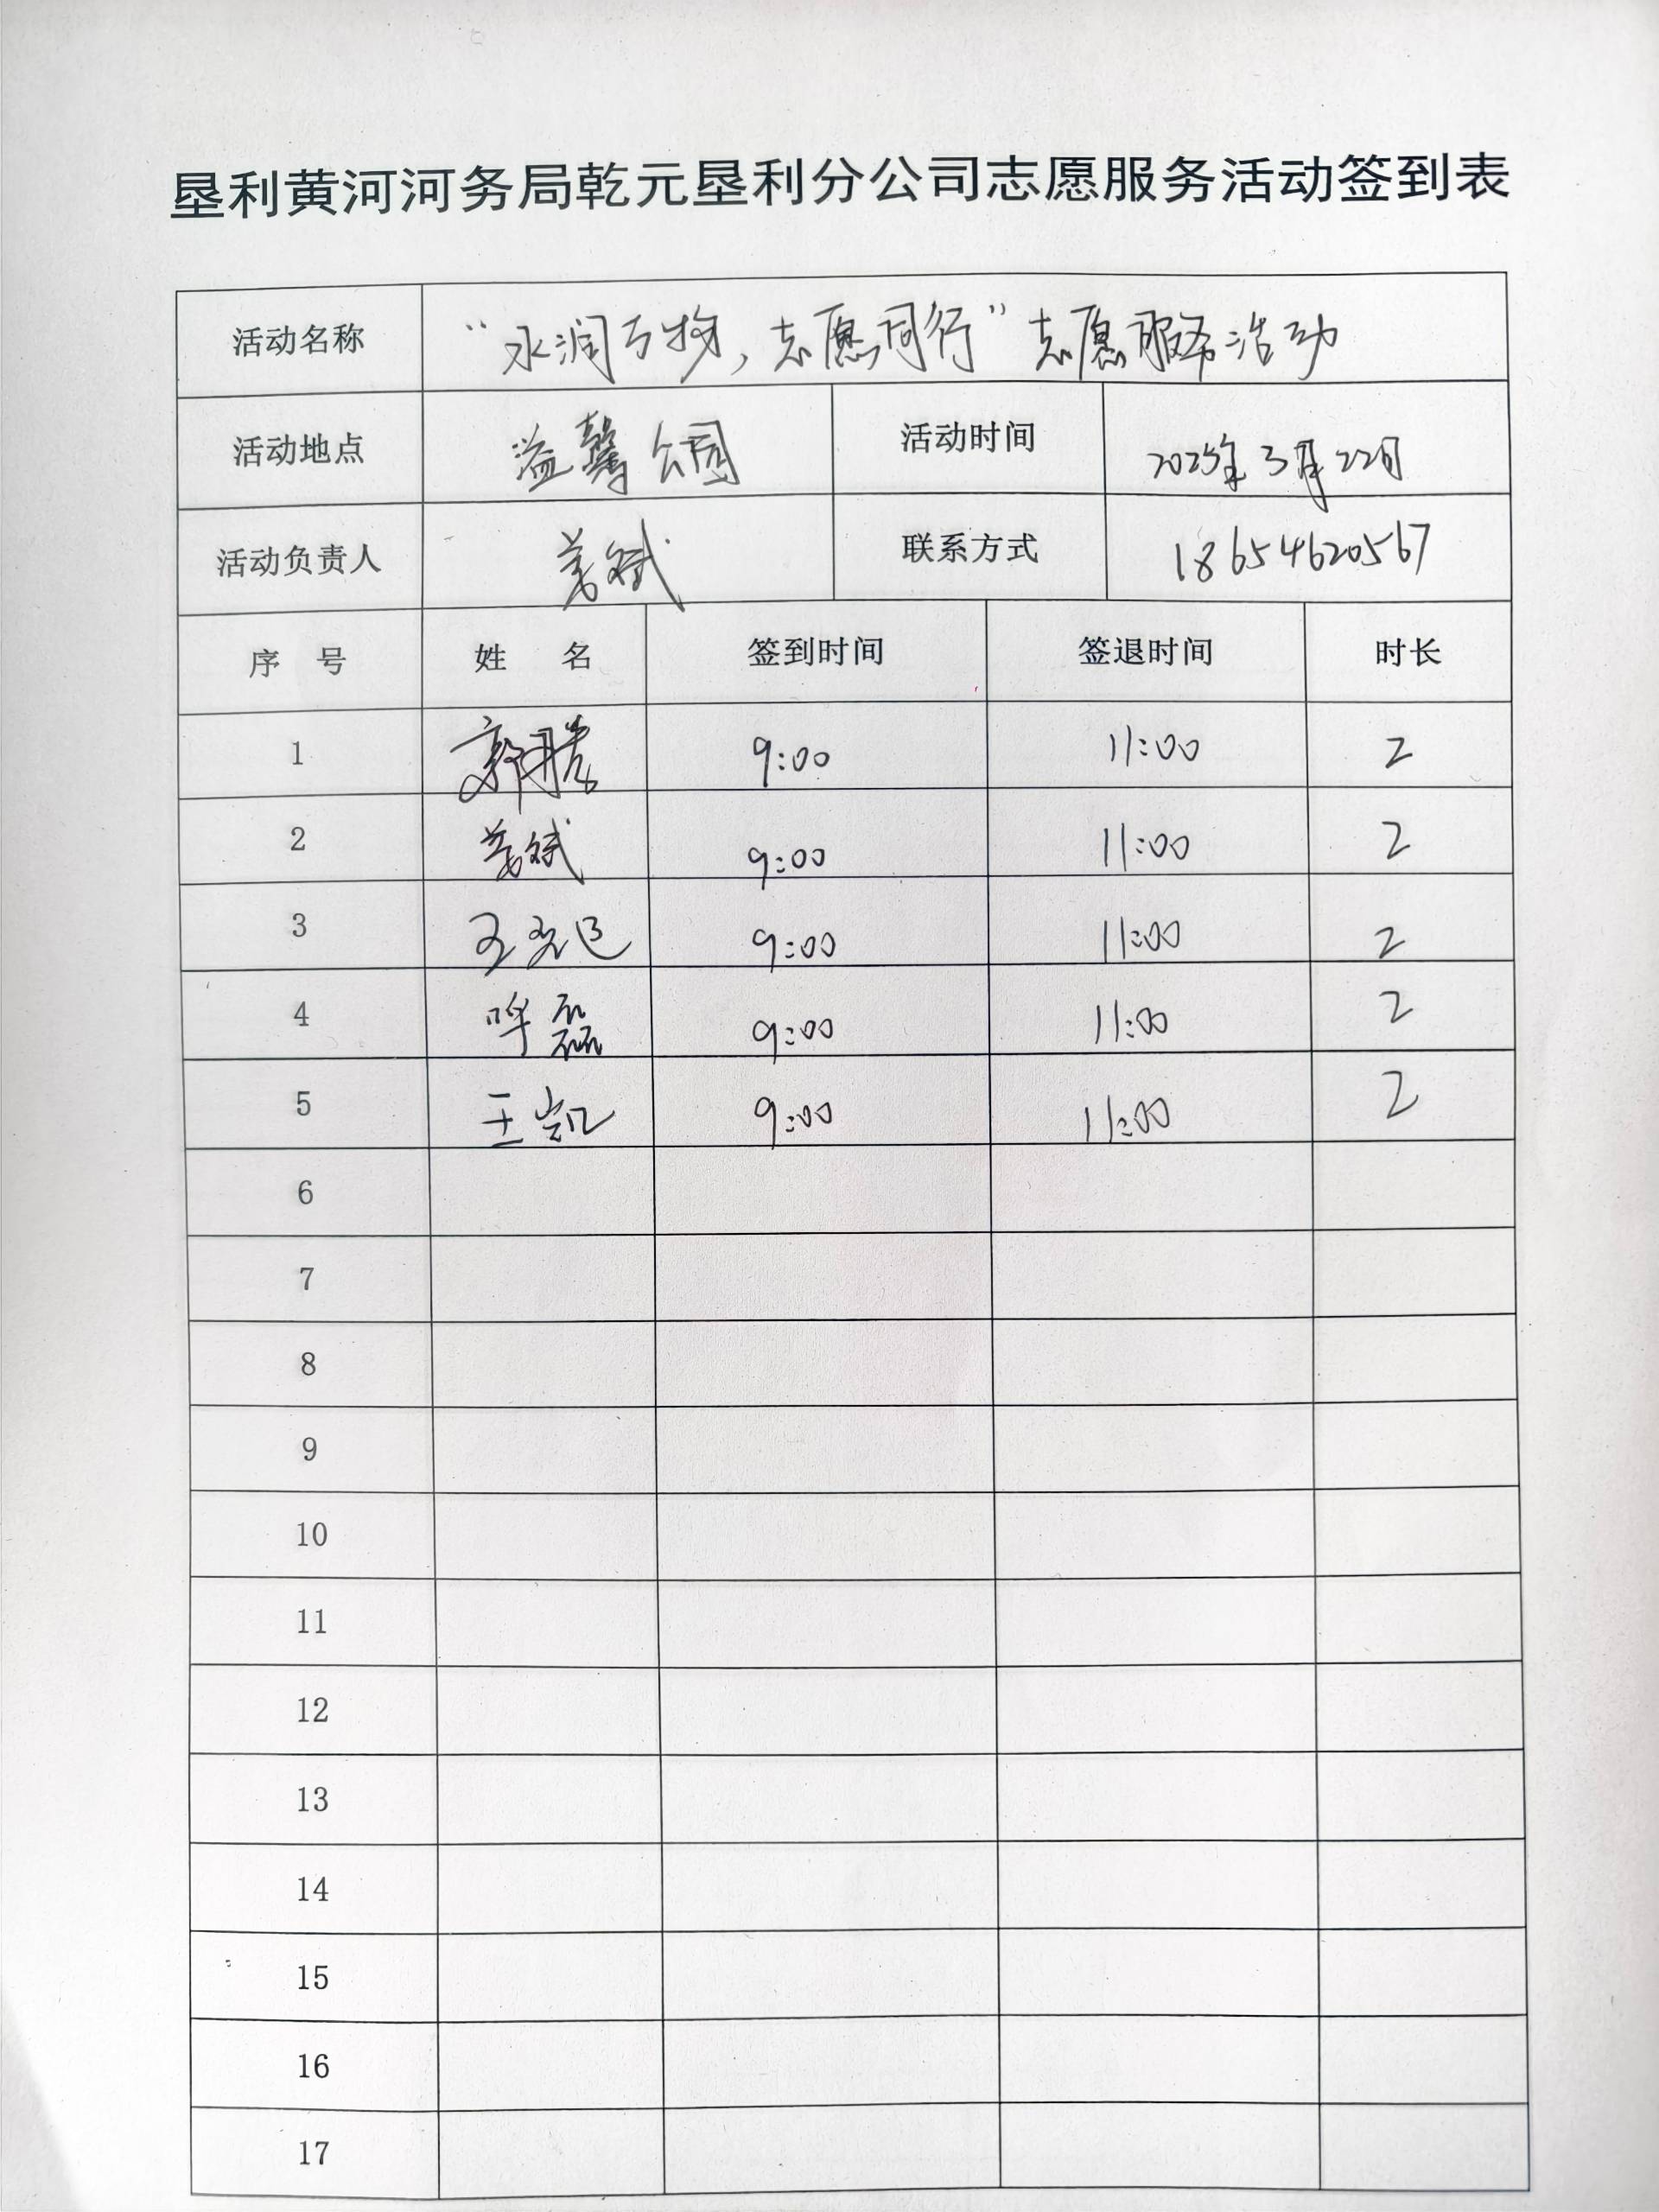 垦利黄河河务局乾元垦利分公司志愿服务活动签到表
活动名称 “水润万物，志愿同行”志愿服务活动
活动地点 溢馨公园 活动时间 2025年3月22日
活动负责人 姜斌 联系方式 18654620567
序 号 姓 名 签到时间 签退时间 时长
1 9:00 11:00 2
2 姜斌 9:00 11:00 2
3 9:00 11:00 2
4 呼磊 9:00 11:00 2
5 王凯 9:00 11:00 2
6
7
8
9
10
11
12
13
14
15
16
17